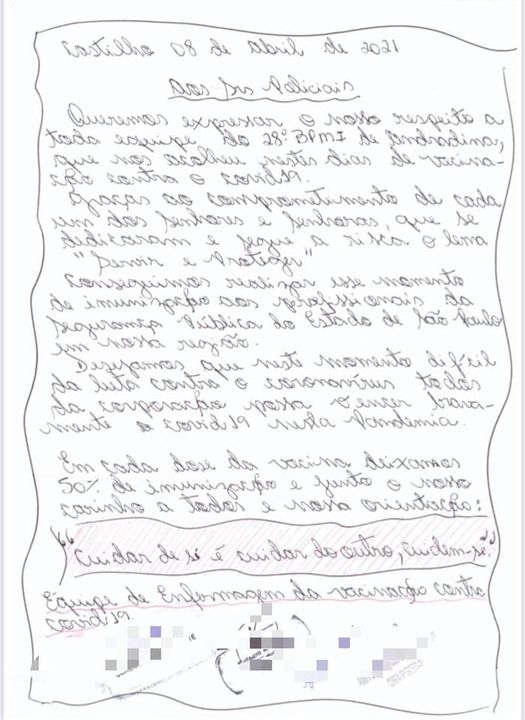 Castilho 08 de Abril de 2021
Aos srs Policiais
Queremos expressar o nosso respeito a
toda equipe do 28º BPMI de Andradina,
que nos acolheu nestes dias de vacina-
ção contra o covid19.
Graças ao comprometimento de cada
um dos senhores e senhoras, que se
dedicaram e segue a risca o lema
"Servir e Proteger"
Conseguimos realizar esse momento
de imunização aos profissionais da
segurança Pública do Estado de São Paulo
em nossa região.
Desejamos que neste momento difícil
da luta contra o coronavírus todos
da corporação possa vencer brava-
mente a covid19 nesta Pandemia.
Em cada dose da vacina deixamos
50% de imunização e junto o nosso
carinho a todos e nossa orientação:
"Cuidar de si é cuidar do outro, cuidem-se."
Equipe de Enfermagem da vacinação contra
covid19.